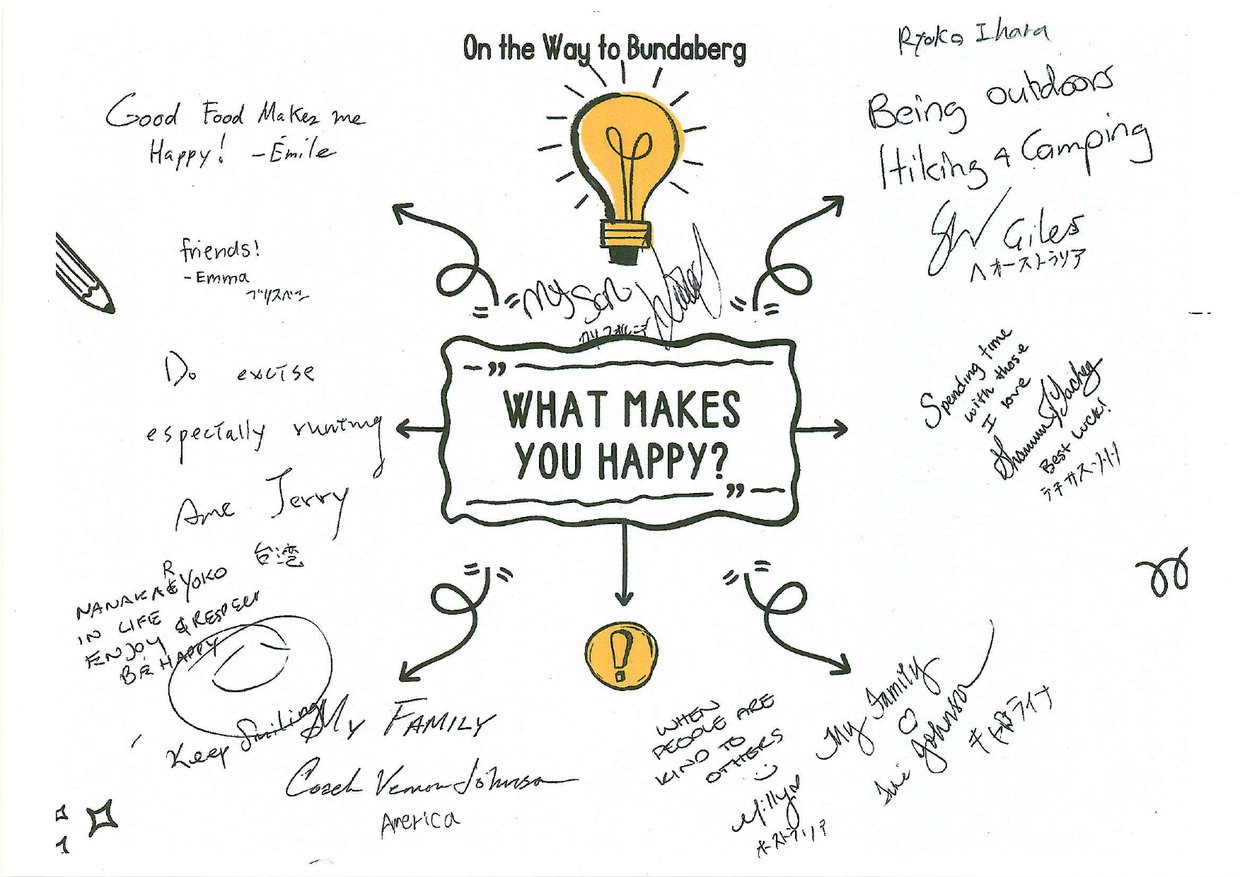 On the Way to Bundaberg
Ryoko Ihara
Good Food Makes me
Happy! -Émile
Being outdoors
Hiking & Camping
Giles
オーストラリア
friends!
-Emma
ブリスベン
My Son
WHAT MAKES
YOU HAPPY?
Spending time
with those
I love
Best Luck!
Do excise
especially running
Ame Jerry
台湾
R
NANAKA & YOKO
IN LIFE
ENJOY & RESPECT
BE HAPPY
Keep Smiling
My FAMILY
Coach Vernon Johnson
America
WHEN
PEOPLE ARE
KIND TO
OTHERS
Milly
オーストラリア
My Family
Johnson